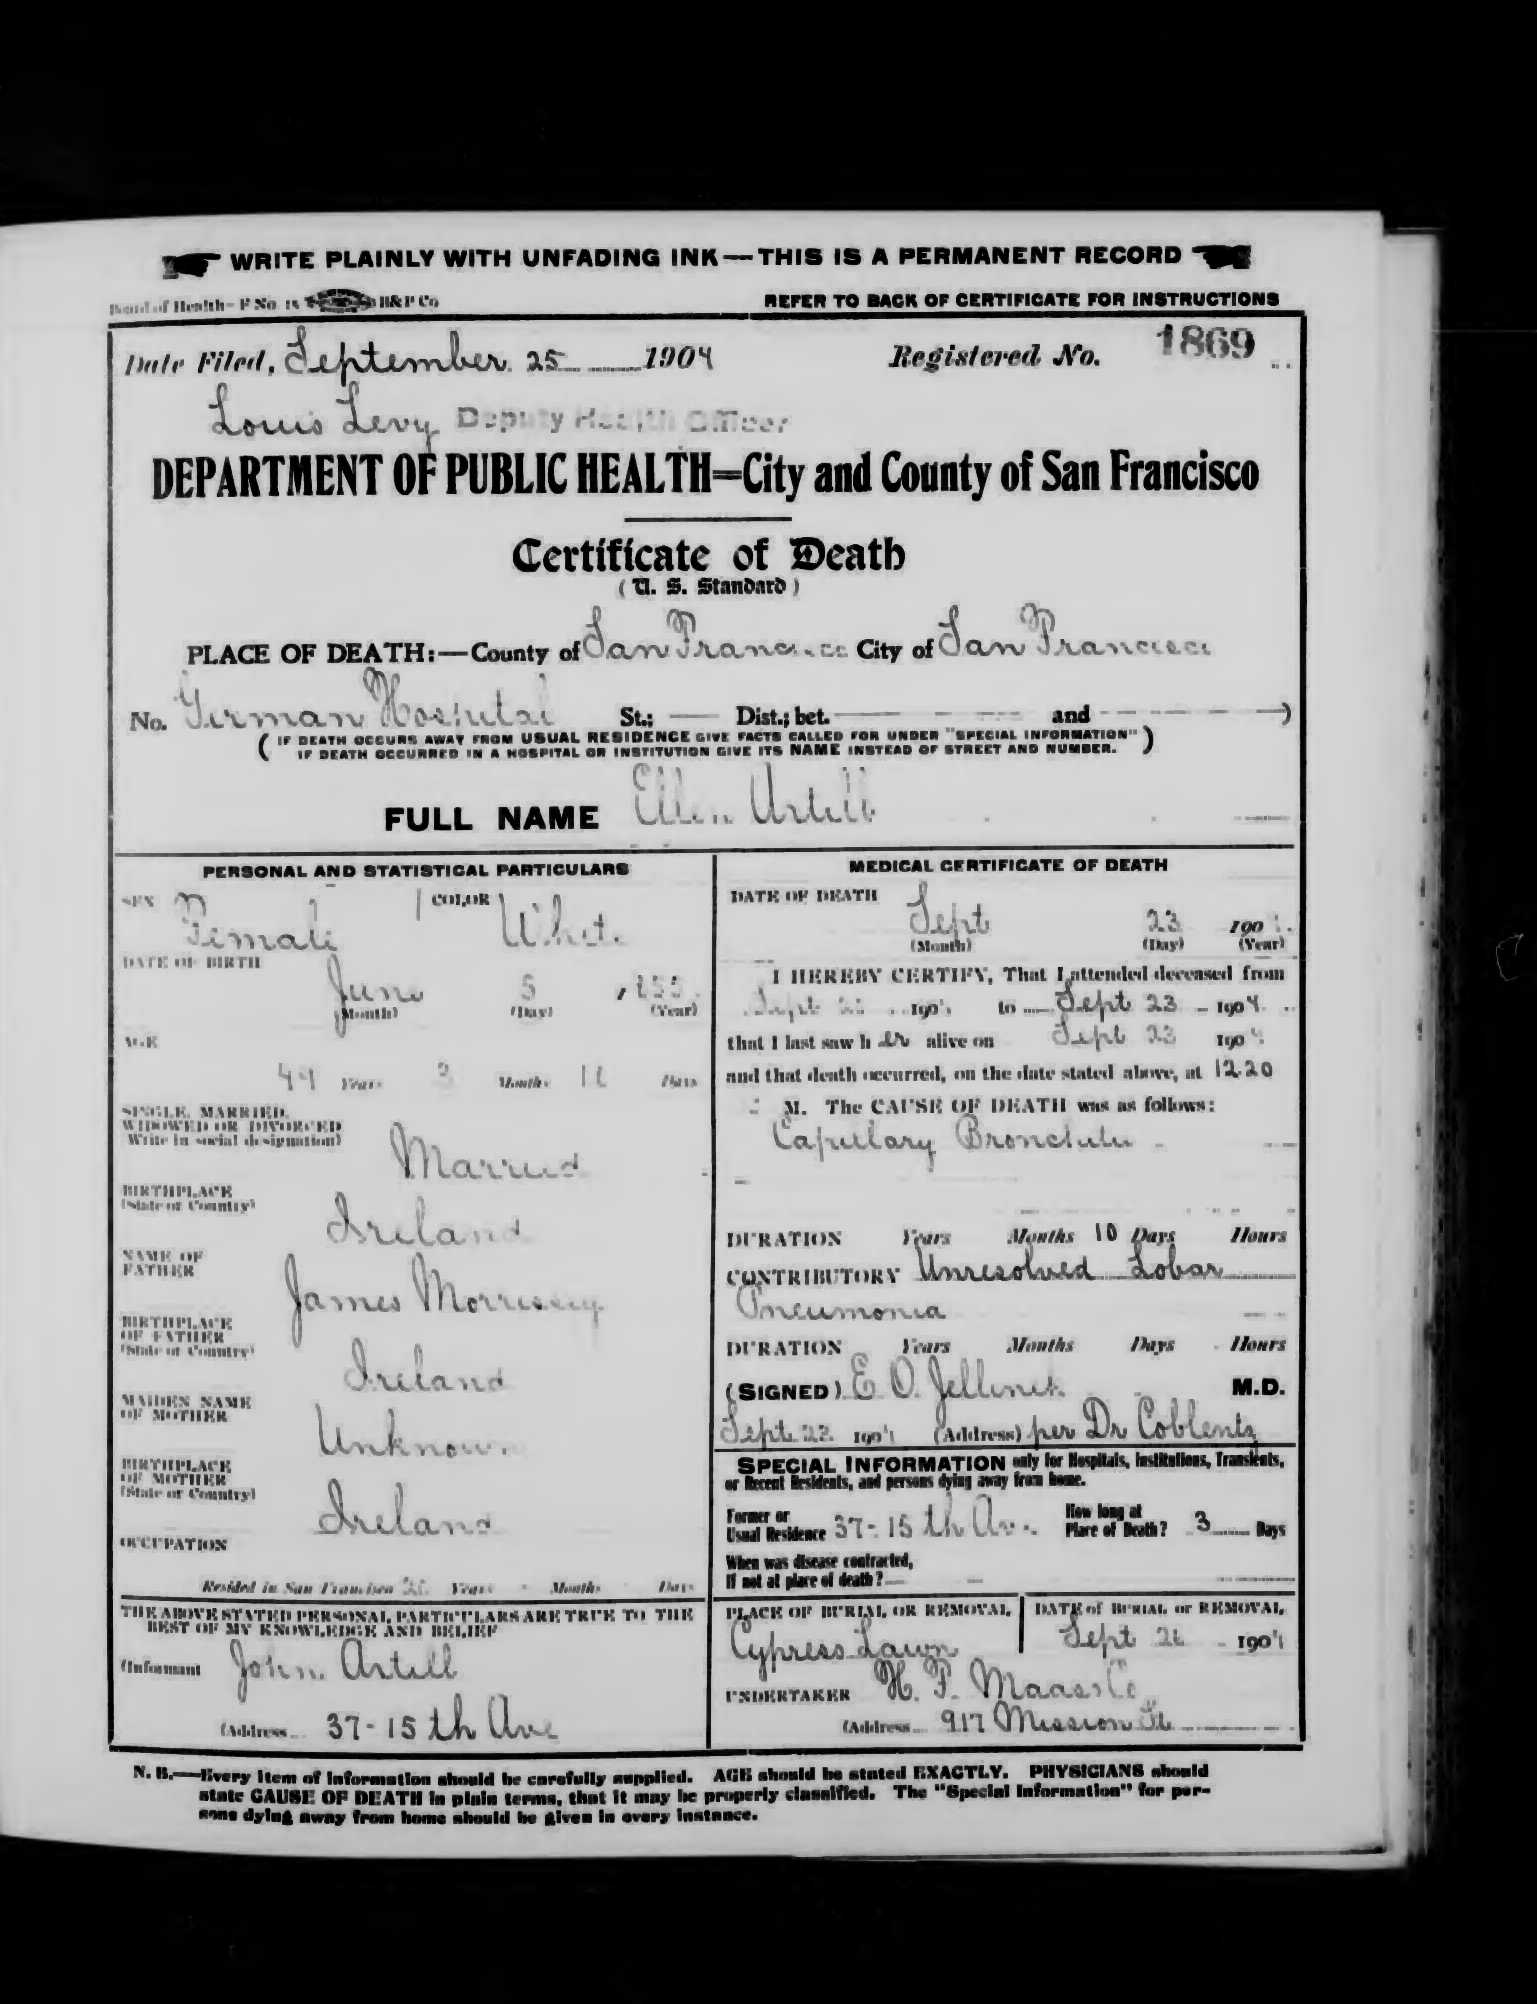 WRITE PLAINLY WITH UNFADING INK—THIS IS A PERMANENT RECORD
Board of Health—F No. 15 H&P Co
REFER TO BACK OF CERTIFICATE FOR INSTRUCTIONS
Date Filed, September 25 1904 Registered No. 1869
Louis Levy Deputy Health Officer
DEPARTMENT OF PUBLIC HEALTH=City and County of San Francisco
Certificate of Death
(U. S. Standard)
PLACE OF DEATH:—County of San Francisco City of San Francisco
No. German Hospital St.; Dist.; bet. and )
( IF DEATH OCCURS AWAY FROM USUAL RESIDENCE GIVE FACTS CALLED FOR UNDER "SPECIAL INFORMATION" )
IF DEATH OCCURRED IN A HOSPITAL OR INSTITUTION GIVE ITS NAME INSTEAD OF STREET AND NUMBER.
FULL NAME Ellen Artell
PERSONAL AND STATISTICAL PARTICULARS
SEX Female COLOR White
DATE OF BIRTH
June 5
(Month) (Day) (Year)
AGE
49 Years 3 Months Days
SINGLE, MARRIED,
WIDOWED OR DIVORCED
(Write in social designation)
Married
BIRTHPLACE
(State or Country)
Ireland
NAME OF
FATHER
James Morrissey
BIRTHPLACE
OF FATHER
(State or Country)
Ireland
MAIDEN NAME
OF MOTHER
Unknown
BIRTHPLACE
OF MOTHER
(State or Country)
Ireland
OCCUPATION
Resided in San Francisco Years Months Days
THE ABOVE STATED PERSONAL PARTICULARS ARE TRUE TO THE
BEST OF MY KNOWLEDGE AND BELIEF
(Informant John Artell
(Address 37-15th Ave
MEDICAL CERTIFICATE OF DEATH
DATE OF DEATH
Sept 23 1904
(Month) (Day) (Year)
I HEREBY CERTIFY, That I attended deceased from
Sept 1904 to Sept 23 1904
that I last saw her alive on Sept 23 1904
and that death occurred, on the date stated above, at 12.20
M. The CAUSE OF DEATH was as follows:
Capillary Bronchitis
DURATION Years Months 10 Days Hours
CONTRIBUTORY Unresolved Lobar
Pneumonia
DURATION Years Months Days Hours
(SIGNED) E. O. Jellinek M.D.
Sept 23 1904 (Address) per Dr Coblentz
SPECIAL INFORMATION only for Hospitals, Institutions, Transients,
or Recent Residents, and persons dying away from home.
Former or
Usual Residence 37-15th Ave.
How long at
Place of Death? 3 Days
When was disease contracted,
If not at place of death?
PLACE OF BURIAL OR REMOVAL
Cypress Lawn
DATE of BURIAL or REMOVAL
Sept 26 1904
UNDERTAKER H. F. Maass Co
(Address 917 Mission St
N. B.—Every item of information should be carefully supplied. AGE should be stated EXACTLY. PHYSICIANS should
state CAUSE OF DEATH in plain terms, that it may be properly classified. The "Special Information" for per-
sons dying away from home should be given in every instance.